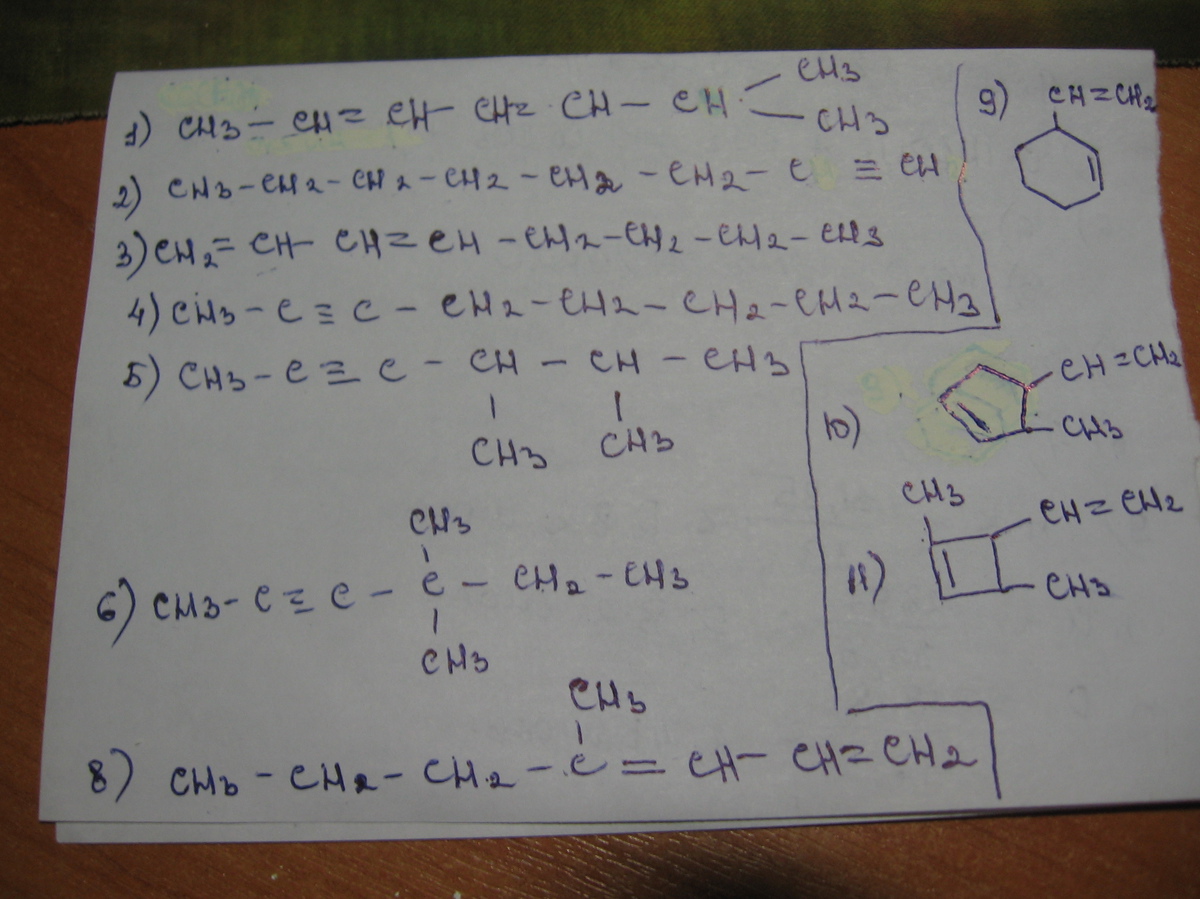 1) CH3 — CH = CH — CH = CH — CH
CH3
CH3
2) CH3 - CH2 - CH2 - CH2 - CH2 - CH2 - C ≡ CH
3) CH2 = CH - CH = CH - CH2 - CH2 - CH2 - CH3
4) CH3 - C ≡ C - CH2 - CH2 - CH2 - CH2 - CH3
5) CH3 - C ≡ C - CH - CH - CH3
CH3 CH3
CH3
6) CH3 - C ≡ C - C - CH2 - CH3
CH3
CH3
8) CH3 - CH2 - CH2 - C = CH - CH = CH2
9) CH = CH2
10) CH = CH2
CH3
CH3
11) CH = CH2
CH3